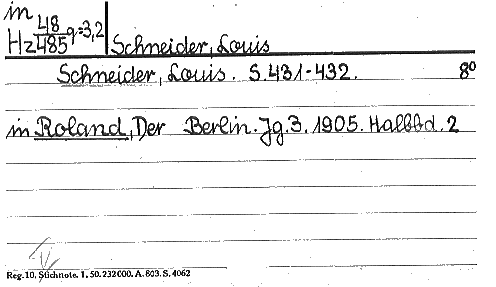 in
Hz 48/485 q=3,2 Schneider, Louis
Schneider, Louis. S. 431-432. 8º
in Roland, Der Berlin. Jg. 3. 1905. Halbbd. 2
Reg. 10. Stichnote. 1. 50. 232000. A. 803. S. 4062